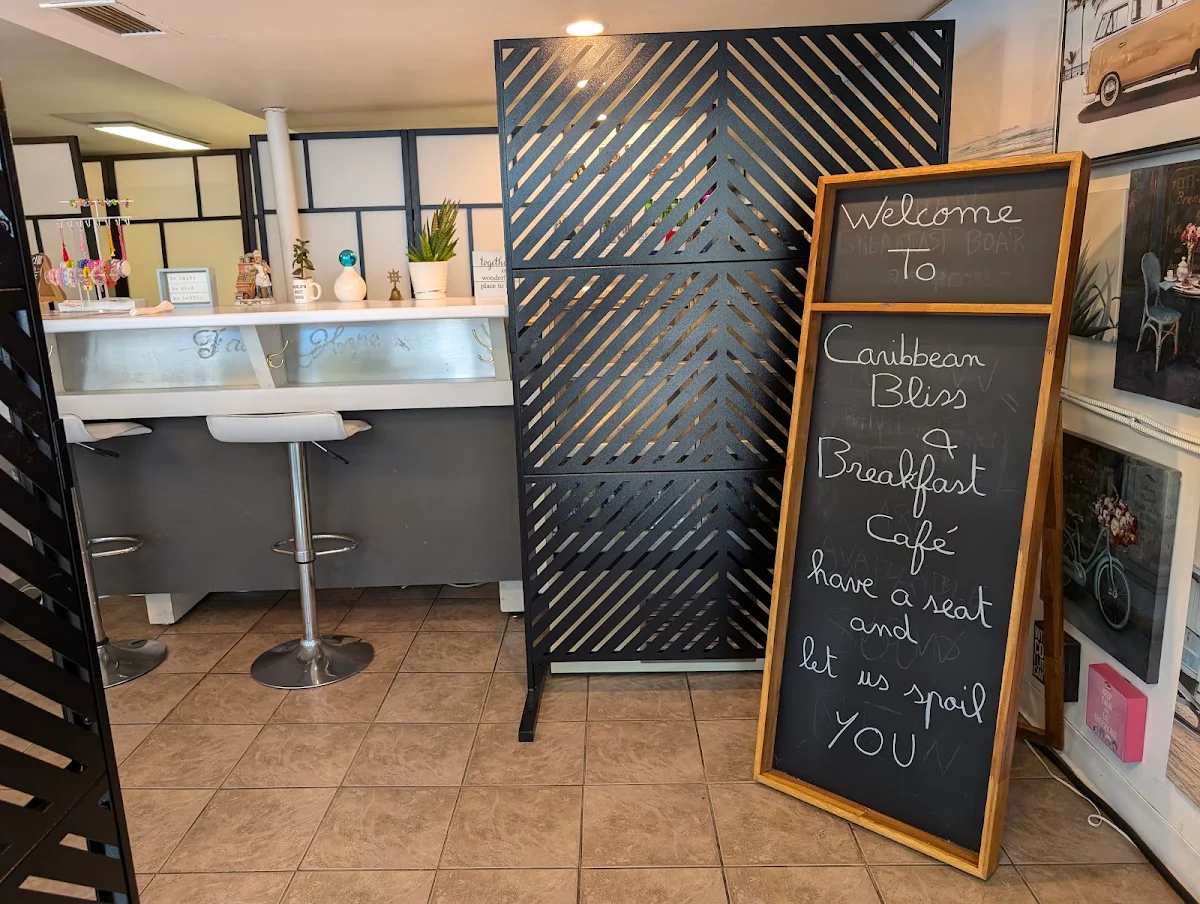 Welcome
To
Caribbean
Bliss
&
Breakfast
Café
have a seat
and
let us spoil
YOU
together